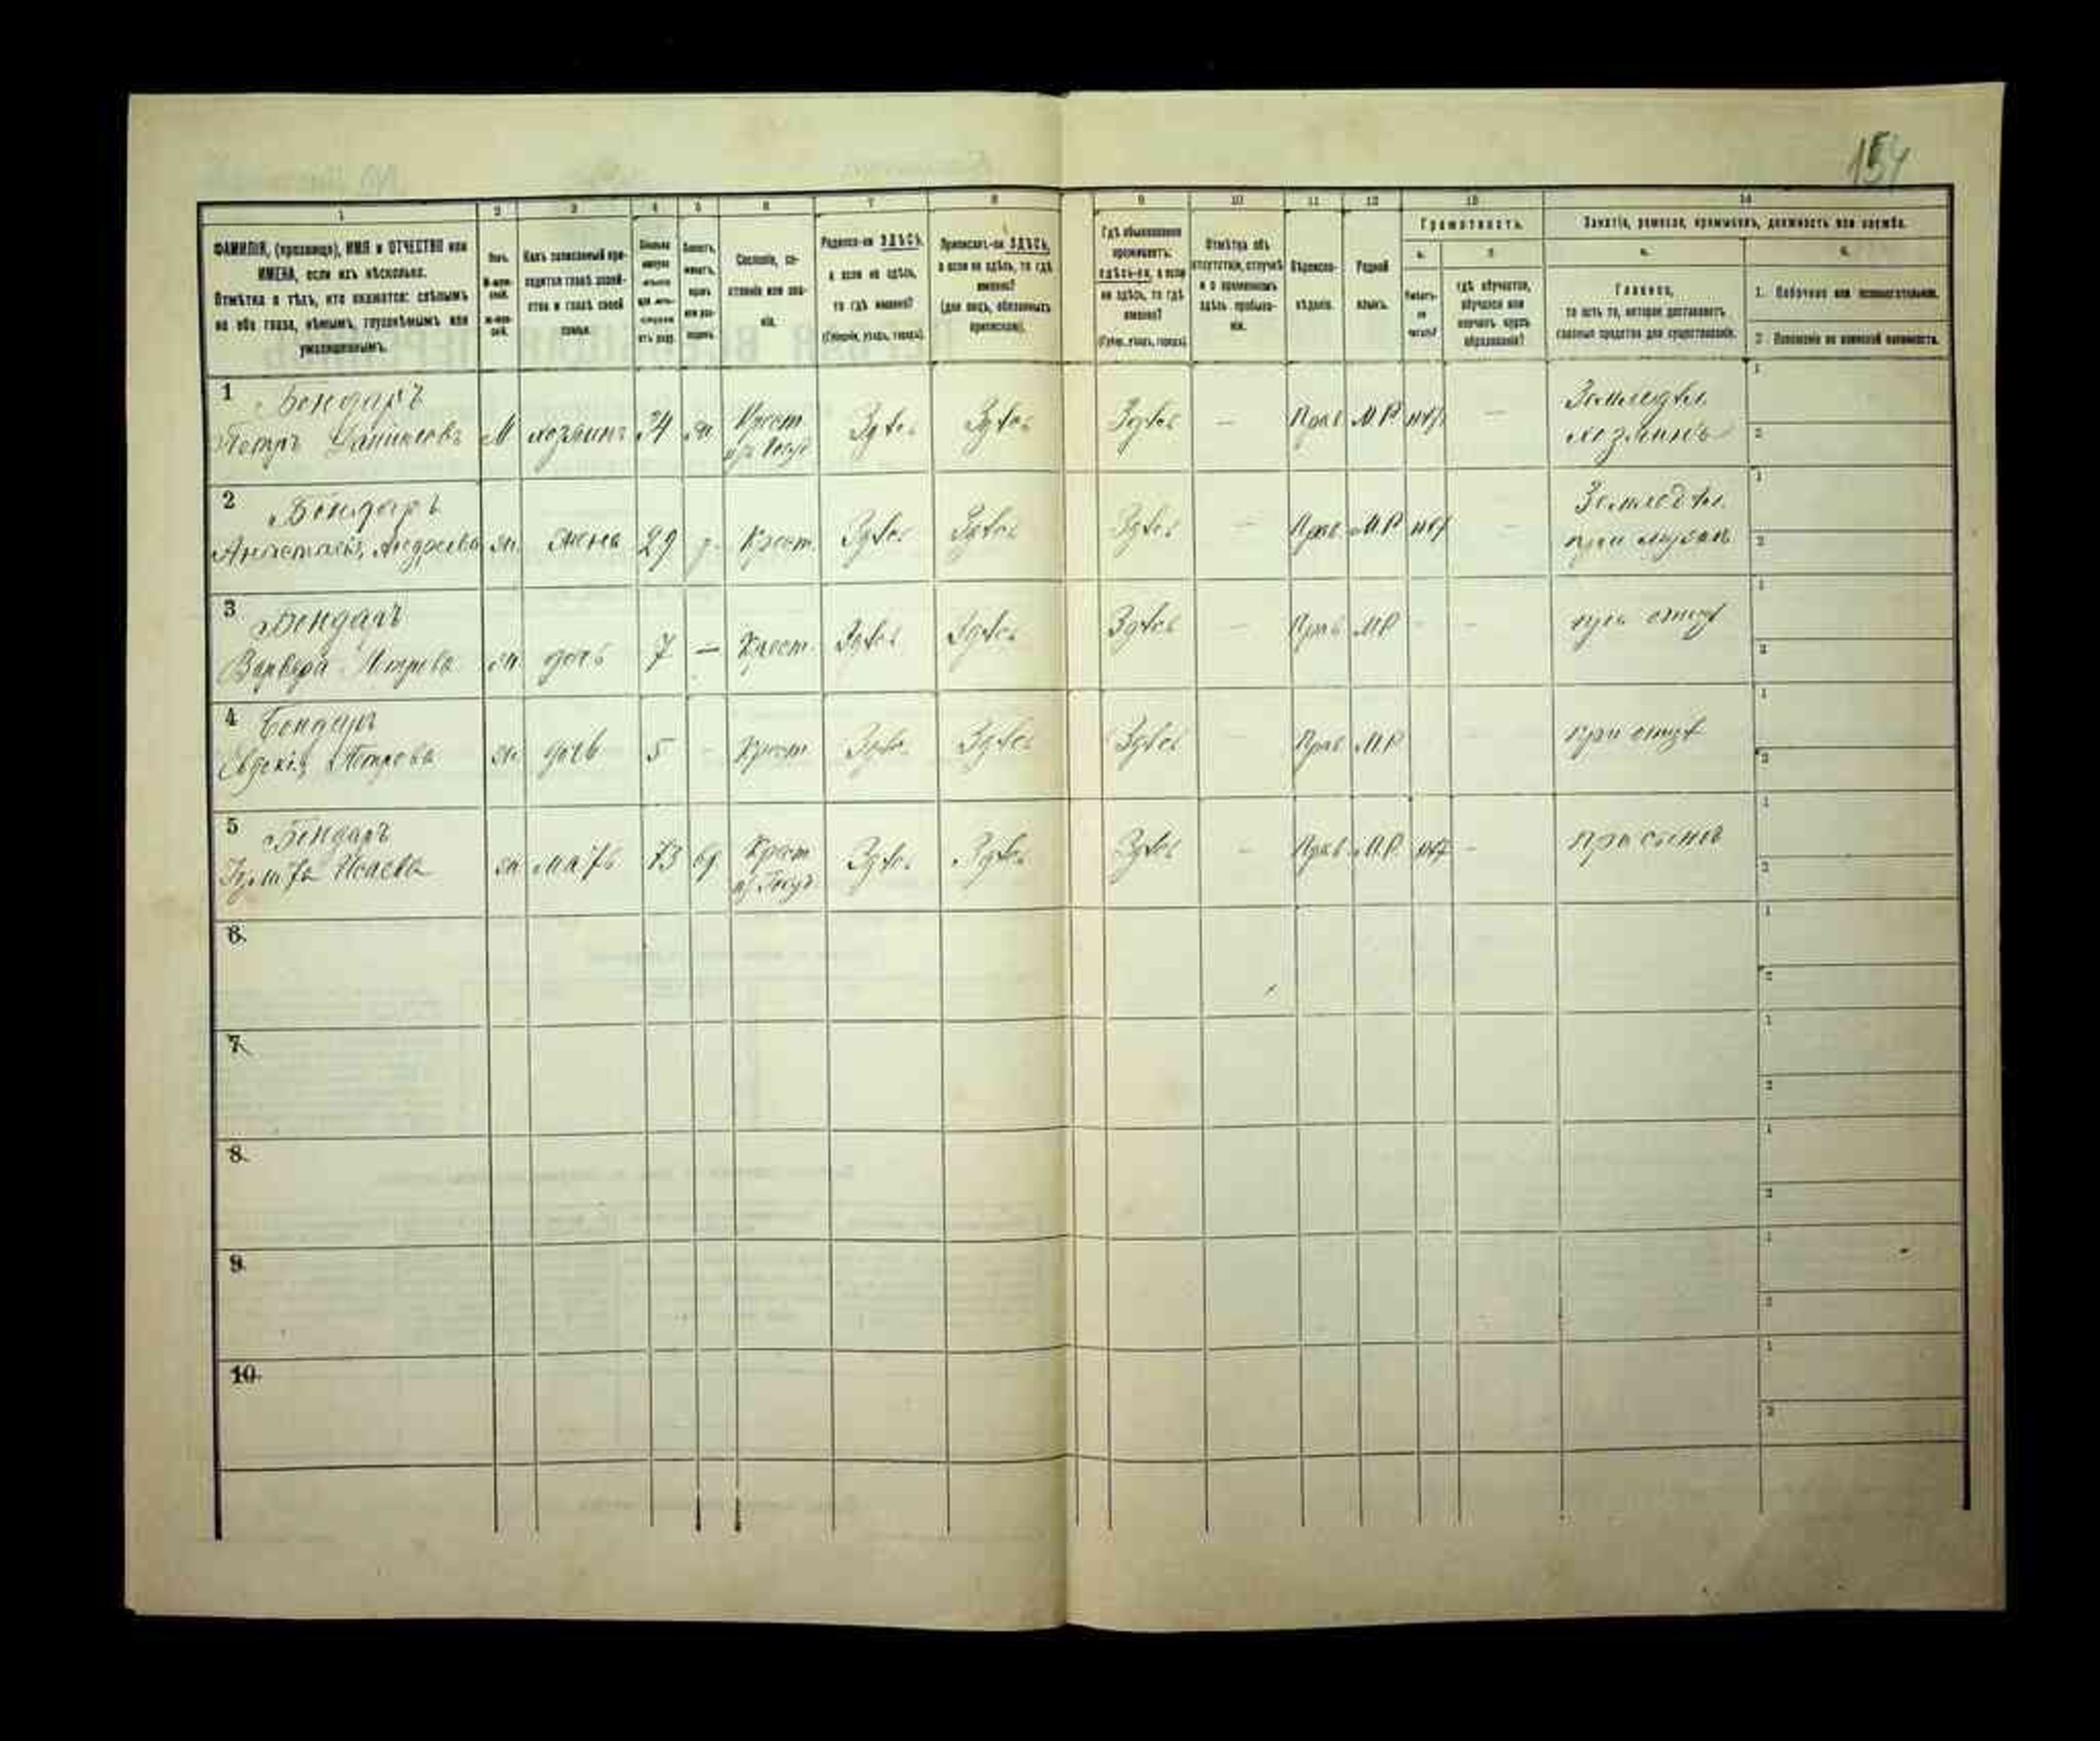 154
1 2 3 4 5 6 7 8 9 10 11 12 13 14
ФАМИЛІЯ, (прозвище), ИМЯ и ОТЧЕСТВО или
ИМЕНА, если ихъ нѣсколько.
Отмѣтка о тѣхъ, кто окажется: слѣпымъ
на оба глаза, нѣмымъ, глухонѣмымъ или
умалишеннымъ.
Полъ.
Какъ записанный при-
ходится главѣ хозяй-
ства и главѣ своей
семьи.
Сословіе, со-
стояніе или зва-
ніе.
Родился-ли ЗДѢСЬ,
а если не здѣсь,
то гдѣ именно?
(Губернія, уѣздъ, городъ).
Приписанъ-ли ЗДѢСЬ,
а если не здѣсь, то гдѣ
именно?
(для лицъ, обязанныхъ
припискою).
Гдѣ обыкновенно
проживаетъ:
здѣсь-ли, а если
не здѣсь, то гдѣ
именно?
(Губер., уѣздъ, городъ).
Отмѣтка объ
отсутствіи, отлучкѣ
и о временномъ
здѣсь пребыва-
ніи.
Вѣроиспо-
вѣданіе.
Родной
языкъ.
Грамотность.
а. б.
Умѣетъ-
ли
читать?
гдѣ обучается,
обучался или
кончилъ курсъ
образованія?
Занятіе, ремесло, промыселъ, должность или служба.
а. б.
Главное,
то есть то, которое доставляетъ
главныя средства для существованія.
1. Побочное или вспомогательное.
2. Положеніе по воинской повинности.
1 Бондарь
Петръ Даниловъ М хозяинъ 34 ж Крест. изъ Госуд Здѣсь Здѣсь Здѣсь — Прав М.Р нѣт — Земледѣл хозяинъ
2 Бондарь
Анастасія Андреева ж. жена 29 Крест. Здѣсь Здѣсь Здѣсь — Прав М.Р нѣт — Земледѣл. при мужѣ
3 Бондарь
Варвара Петрова ж. дочь 7 — Крест. Здѣсь Здѣсь Здѣсь — Прав М.Р - - при отцѣ
4 Бондарь
Евдокія Петрова ж. дочь 5 - Крест Здѣсь Здѣсь Здѣсь Прав М.Р при отцѣ
5 Бондарь
Исаева ж мать 73 вд Крест из Госуд. Здѣсь Здѣсь Здѣсь — Прав М.Р. нѣт - при сынѣ
6.
7.
8.
9.
10.